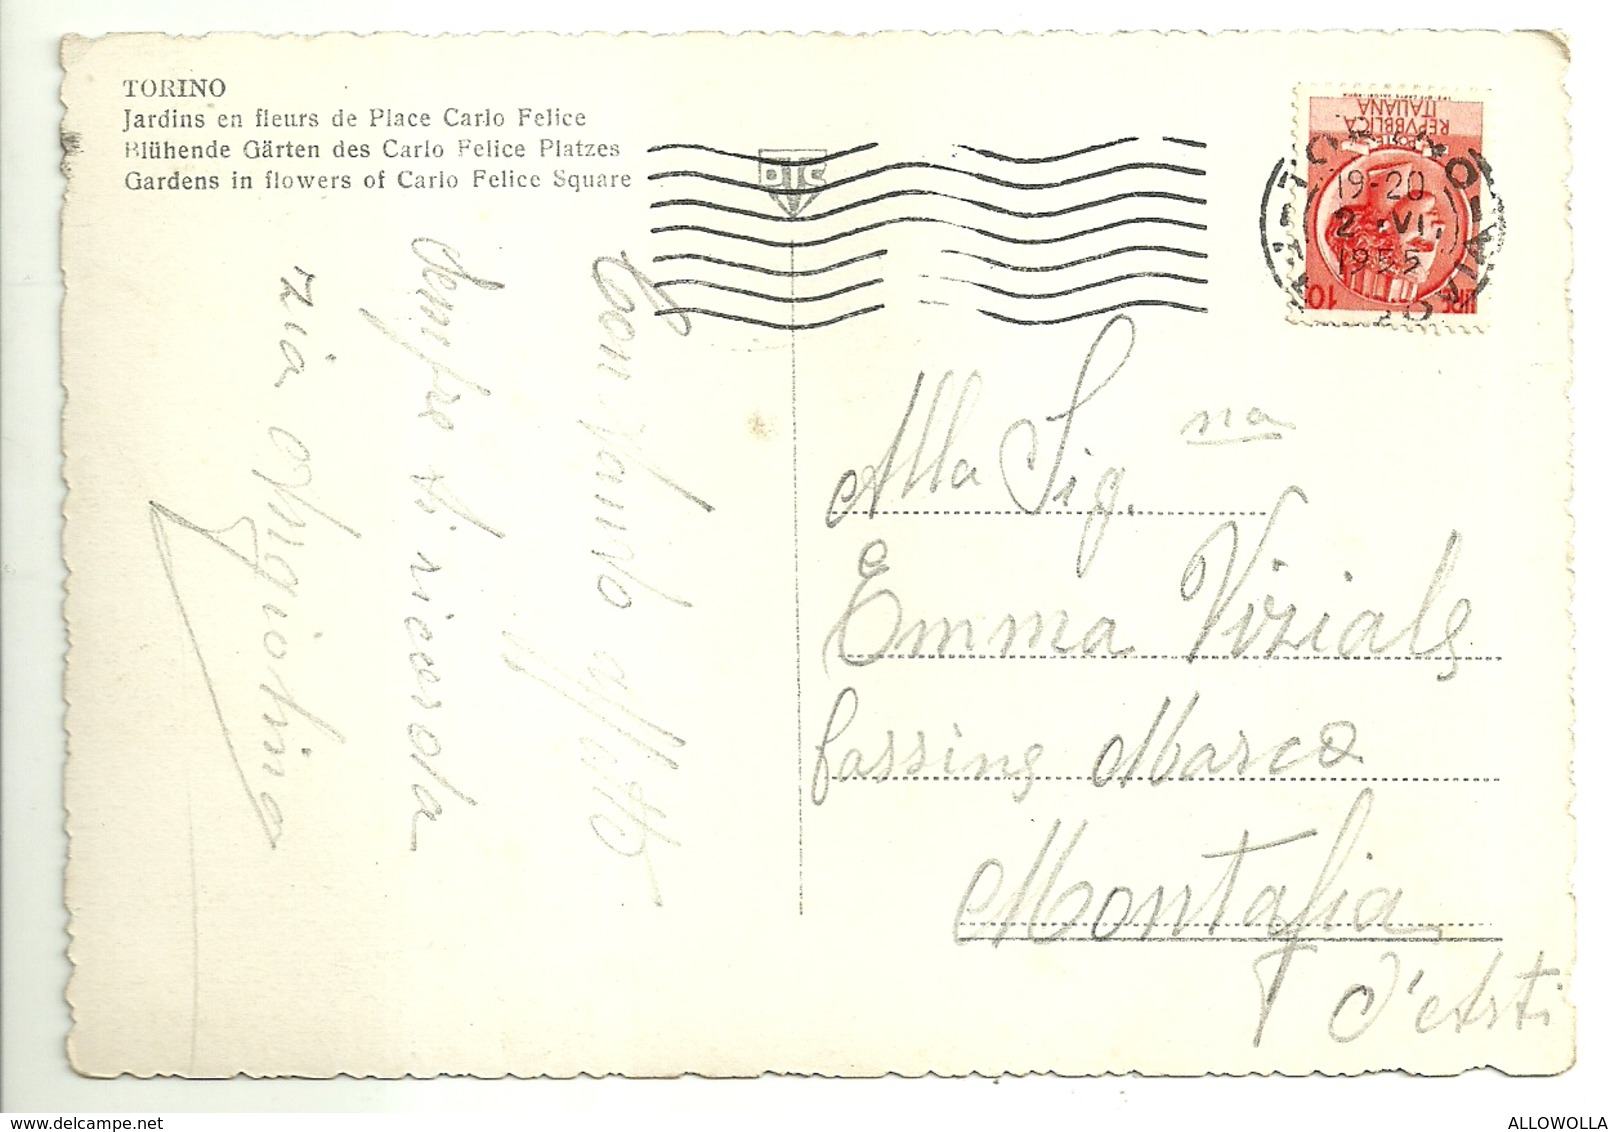 TORINO
Jardins en fleurs de Place Carlo Felice
Blühende Gärten des Carlo Felice Platzes
Gardens in flowers of Carlo Felice Square
DTC
REPVBBLICA
ITALIANA
POSTE
LIRE 10
TORINO
19-20
2 • VI.
1955
Con tanto affetto
sempre ti ricorda
zia Angiolina
Alla Sig.na
Emma Viziale
Marco
Montafia
d'Asti
ALLOWOLLA